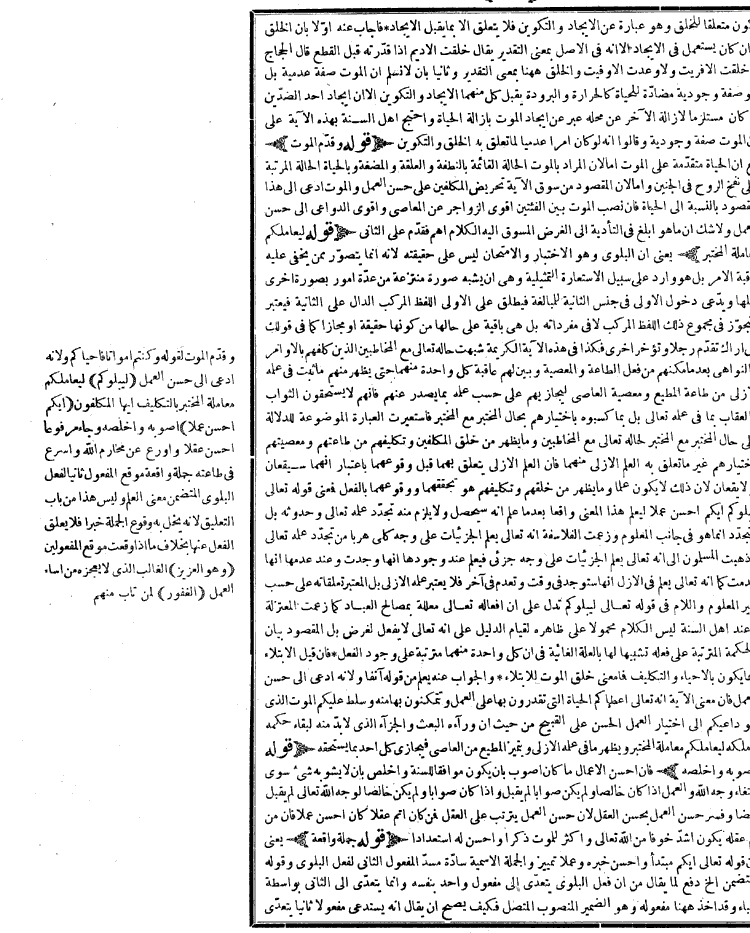 كون متعلقا للخلق وهو عبارة عن الايجاد والتكوين فلا يتعلق الا بما يقبل الايجاد*فاجاب عنه اولا بان الخلق
ان كان يستعمل فى الايجاد الا انه فى الاصل بمعنى التقدير يقال خلقت الاديم اذا قدرته قبل القطع قال الحجاج
خلقت الا فريت ولا وعدت الا وفيت والخلق ههنا بمعنى التقدير وثانيا بان لا نسلم ان الموت صفة عدمية بل
و صفة وجودية مضادة للحياة كالحرارة والبرودة يقبل كل منهما الايجاد والتكوين الا ان ايجاد احد الضدين
كان مستلزما لازالة الآخر عن محله عبر عن ايجاد الموت بازالة الحياة واحتج اهل السنة بهذه الآية على
الموت صفة وجودية وقالوا انه لو كان امرا عدميا لما تعلق به الخلق والتكوين قوله وقدم الموت
ع ان الحياة متقدمة على الموت اما لان المراد بالموت الحالة القائمة بالنطفة والعلقة والمضغة وبالحياة الحالة المرتبة
لى نفخ الروح فى الجنين واما لان المقصود من سوق الآية تحريض المكلفين على حسن العمل والموت ادعى الى هذا
قصود بالنسبة الى الحياة فان نصب الموت بين الفئتين اقوى الزواجر عن المعاصى واقوى الدواعى الى حسن
عمل ولا شك ان ما هو ابلغ فى التأدية الى الغرض المسوق اليه الكلام اهم فقدم على الثانى قوله ليعاملكم
عاملة المختبر يعنى ان البلوى وهو الاختبار والامتحان ليس على حقيقته لانه انما يتصور ممن يخفى عليه
قبة الامر بل هو وارد على سبيل الاستعارة التمثيلية وهى ان يشبه صورة منتزعة من عدة امور بصورة اخرى
لها ويدعى دخول الاولى فى جنس الثانية للمبالغة فيطلق على الاولى اللفظ المركب الدال على الثانية فيعتبر
تجوز فى مجموع ذلك اللفظ المركب لا فى مفرداته بل هى باقية على حالها من كونها حقيقة او مجازا كما فى قولك
ى اراك تقدم رجلا وتؤخر اخرى فكذا فى هذه الآية الكريمة شبهت حاله تعالى مع المخاطبين الذين كلفهم بالاوامر
النواهى بعدما مكنهم من فعل الطاعة والمعصية وبين لهم عاقبة كل واحدة منهما حتى يظهر منهم ما ثبت فى علمه
ازلى من طاعة المطيع ومعصية العاصى ليجازيهم على حسب علمه بما يصدر عنهم فانهم لا يستحقون الثواب
العقاب بما فى علمه تعالى بل بما كسبوه باختيارهم بحال المختبر مع المختبر فاستعيرت العبارة الموضوعة للدلالة
لى حال المختبر مع المختبر لحاله تعالى مع المخاطبين وما يظهر من خلق المكلفين وتكليفهم من طاعتهم ومعصيتهم
ختيارهم غير ما تعلق به العلم الازلى منهما فان العلم الازلى يتعلق بهما قبل وقوعهما باعتبار انهما سيقعان
لا يقعان لان ذلك لا يكون علما وما يظهر من خلقهم وتكليفهم هو تحققهما ووقوعهما بالفعل فمعنى قوله تعالى
بلوكم ايكم احسن عملا ليعلم هذا المعنى واقعا بعدما علم انه سيحصل ولا يلزم منه تجدد علمه تعالى وحدوثه بل
تجدد انما هو فى جانب المعلوم وزعمت الفلاسفة انه تعالى يعلم الجزئيات على وجه كلى هربا من تجدد علمه تعالى
ذهبت المسلمون الى انه تعالى يعلم الجزئيات على وجه جزئى فيعلم عند وجودها انها وجدت وعند عدمها انها
دمت كما انه تعالى يعلم فى الازل انها ستوجد فى وقت وتعدم فى آخر فلا يعتبر علمه الازلى بل المعتبر تعلقاته على حسب
ير المعلوم واللام فى قوله تعالى ليبلوكم تدل على ان افعاله تعالى معللة بمصالح العباد كما زعمت المعتزلة
عند اهل السنة ليس الكلام محمولا على ظاهره لقيام الدليل على انه تعالى لا يفعل لغرض بل المقصود بيان
لحكمة المترتبة على فعله تشبيها لها بالعلة الغائية فى ان كل واحدة منهما مترتبة على وجود الفعل*فان قيل الابتلاء
ما يكون بالاحياء والتكليف فما معنى خلق الموت للابتلاء*والجواب عنه يعلم من قوله آنفا ولانه ادعى الى حسن
عمل فان معنى الآية انه تعالى اعطاكم الحياة التى تقدرون بها على العمل وتتمكنون بها منه وسلط عليكم الموت الذى
و داعيكم الى اختيار العمل الحسن على القبيح من حيث ان وراءه البعث والجزاء الذى لا بد منه لبقاء حكمه
ملكه ليعاملكم معاملة المختبر ويظهر ما فى علمه الازلى ويتميز المطيع من العاصى فيجازى كل احد بما يستحقه قوله
صوبه واخلصه فان احسن الاعمال ما كان اصوب بان يكون موافقا للسنة واخلص بان لا يشوبه شئ سوى
تغاء وجه الله والعمل اذا كان خالصا ولم يكن صوابا لم يقبل واذا كان صوابا ولم يكن خالصا لوجه الله تعالى لم يقبل
ضا وفسر حسن العمل بحسن العقل لان حسن العمل يترتب على العقل فمن كان اتم عقلا كان احسن عملا فان من
م عقله يكون اشد خوفا من الله تعالى واكثر للموت ذكرا واحسن له استعدادا قوله جملة واقعة يعنى
ن قوله تعالى ايكم مبتدأ واحسن خبره وعملا تمييز والجملة الاسمية سادة مسد المفعول الثانى لفعل البلوى وقوله
تضمن الخ دفع لما يقال من ان فعل البلوى يتعدى الى مفعول واحد بنفسه وانما يتعدى الى الثانى بواسطة
باء وقد اخذ ههنا مفعوله وهو الضمير المنصوب المتصل فكيف يصح ان يقال انه يستدعى مفعولا ثانيا يتعدى
وقدم الموت لقوله وكنتم امواتا فاحياكم ولانه
ادعى الى حسن العمل (ليبلوكم) ليعاملكم
معاملة المختبر بالتكليف ايها المكلفون (ايكم
احسن عملا) اصوبه واخلصه وجاء مرفوعا
احسن عقلا واورع عن محارم الله واسرع
فى طاعته جملة واقعة موقع المفعول ثانيا لفعل
البلوى المتضمن معنى العلم وليس هذا من باب
التعليق لانه يخل به وقوع الجملة خبرا فلا يعلق
الفعل عنها بخلاف ما اذا وقعت موقع المفعولين
(وهو العزيز) الغالب الذى لا يعجزه من اساء
العمل (الغفور) لمن تاب منهم